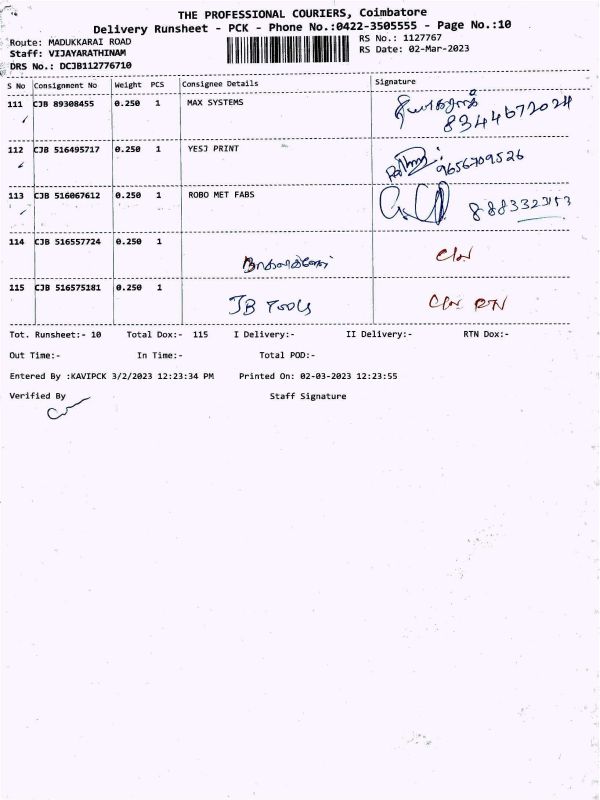 THE PROFESSIONAL COURIERS, Coimbatore
Delivery Runsheet - PCK - Phone No.:0422-3505555 - Page No.:10
Route: MADUKKARAI ROAD
RS No.: 1127767
Staff: VIJAYARATHINAM
RS Date: 02-Mar-2023
DRS No.: DCJB112776710
S No Consignment No Weight PCS Consignee Details Signature
111 CJB 89308455 0.250 1 MAX SYSTEMS
8344672024
112 CJB 516495717 0.250 1 YESJ PRINT
9656709526
113 CJB 516067612 0.250 1 ROBO MET FABS
114 CJB 516557724 0.250 1
C/N
115 CJB 516575181 0.250 1
JB Tools C/N RTN
Tot. Runsheet:- 10 Total Dox:- 115 I Delivery:- II Delivery:- RTN Dox:-
Out Time:- In Time:- Total POD:-
Entered By :KAVIPCK 3/2/2023 12:23:34 PM Printed On: 02-03-2023 12:23:55
Verified By Staff Signature